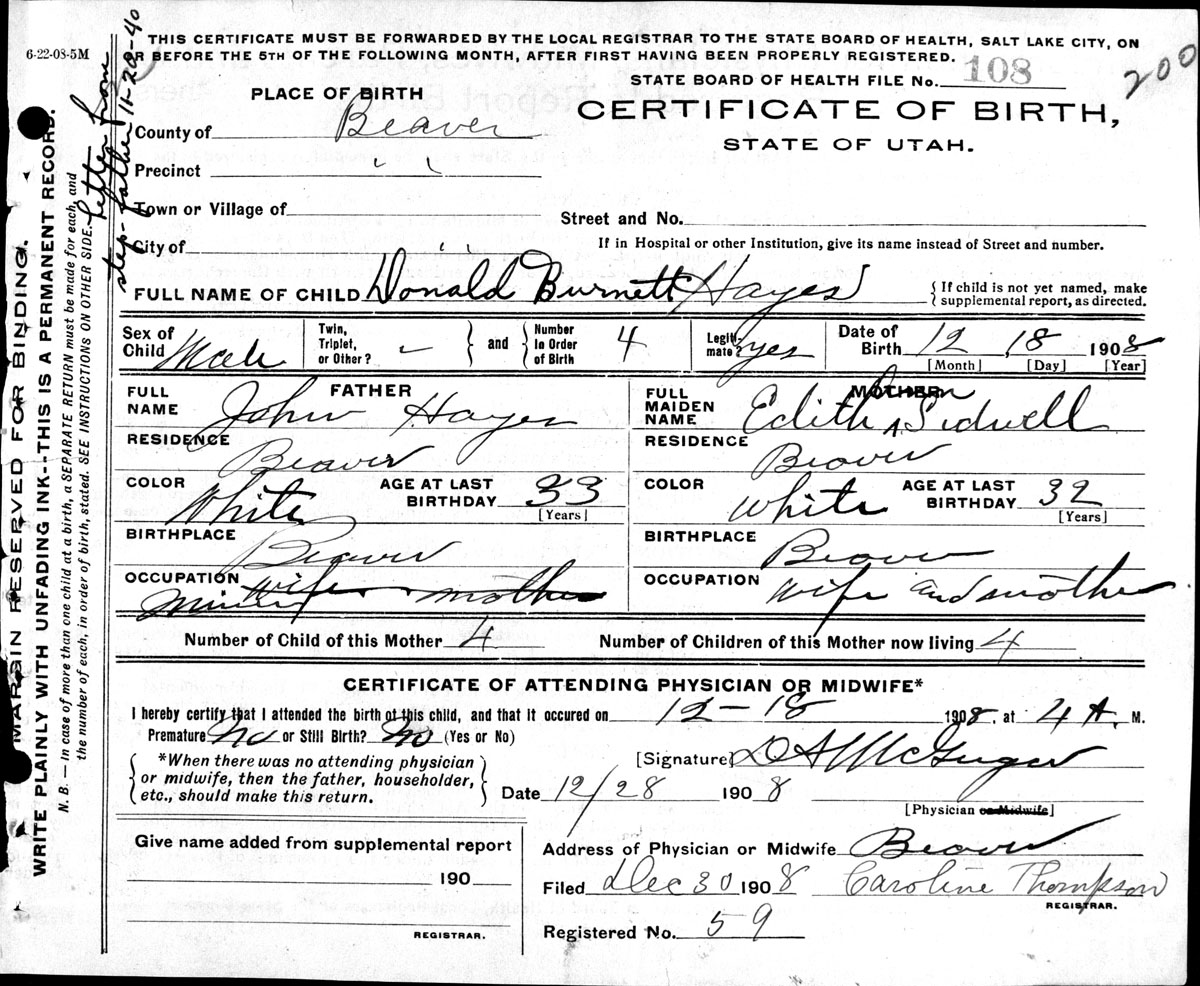 6-22-08-5M
THIS CERTIFICATE MUST BE FORWARDED BY THE LOCAL REGISTRAR TO THE STATE BOARD OF HEALTH, SALT LAKE CITY, ON
R BEFORE THE 5TH OF THE FOLLOWING MONTH, AFTER FIRST HAVING BEEN PROPERLY REGISTERED.
STATE BOARD OF HEALTH FILE No. 108
200
PLACE OF BIRTH
CERTIFICATE OF BIRTH,
STATE OF UTAH.
County of Beaver
Precinct " "
Town or Village of
Street and No.
City of " "
If in Hospital or other Institution, give its name instead of Street and number.
FULL NAME OF CHILD Donald Burnett Hayes
{ If child is not yet named, make
supplemental report, as directed.
Sex of Child Male
Twin, Triplet, or Other? -
and
Number In Order of Birth 4
Legiti-mate? yes
Date of Birth 12 18 1908
[Month] [Day] [Year]
FATHER
FULL NAME John Hayes
RESIDENCE Beaver
COLOR White
AGE AT LAST BIRTHDAY 33
[Years]
BIRTHPLACE Beaver
OCCUPATION wife mother
Miner
MOTHER
FULL MAIDEN NAME Edith Sidwell
RESIDENCE Beaver
COLOR White
AGE AT LAST BIRTHDAY 32
[Years]
BIRTHPLACE Beaver
OCCUPATION wife and mother
Number of Child of this Mother 4
Number of Children of this Mother now living 4
CERTIFICATE OF ATTENDING PHYSICIAN OR MIDWIFE*
I hereby certify that I attended the birth ot this child, and that it occured on 12-18 1908, at 4 A. M.
Premature No or Still Birth? No (Yes or No)
*When there was no attending physician
or midwife, then the father, householder,
etc., should make this return.
[Signature]
Date 12/28 1908
[Physician or Midwife]
Give name added from supplemental report
190
REGISTRAR.
Address of Physician or Midwife Beaver
Filed Dec 30 1908 Caroline Thompson
REGISTRAR.
Registered No. 59
MARGIN RESERVED FOR BINDING.
WRITE PLAINLY WITH UNFADING INK--THIS IS A PERMANENT RECORD.
N. B. — In case of more than one child at a birth, a SEPARATE RETURN must be made for each, and
the number of each, in order of birth, stated. SEE INSTRUCTIONS ON OTHER SIDE.
Letter from
step-father 11-22-40